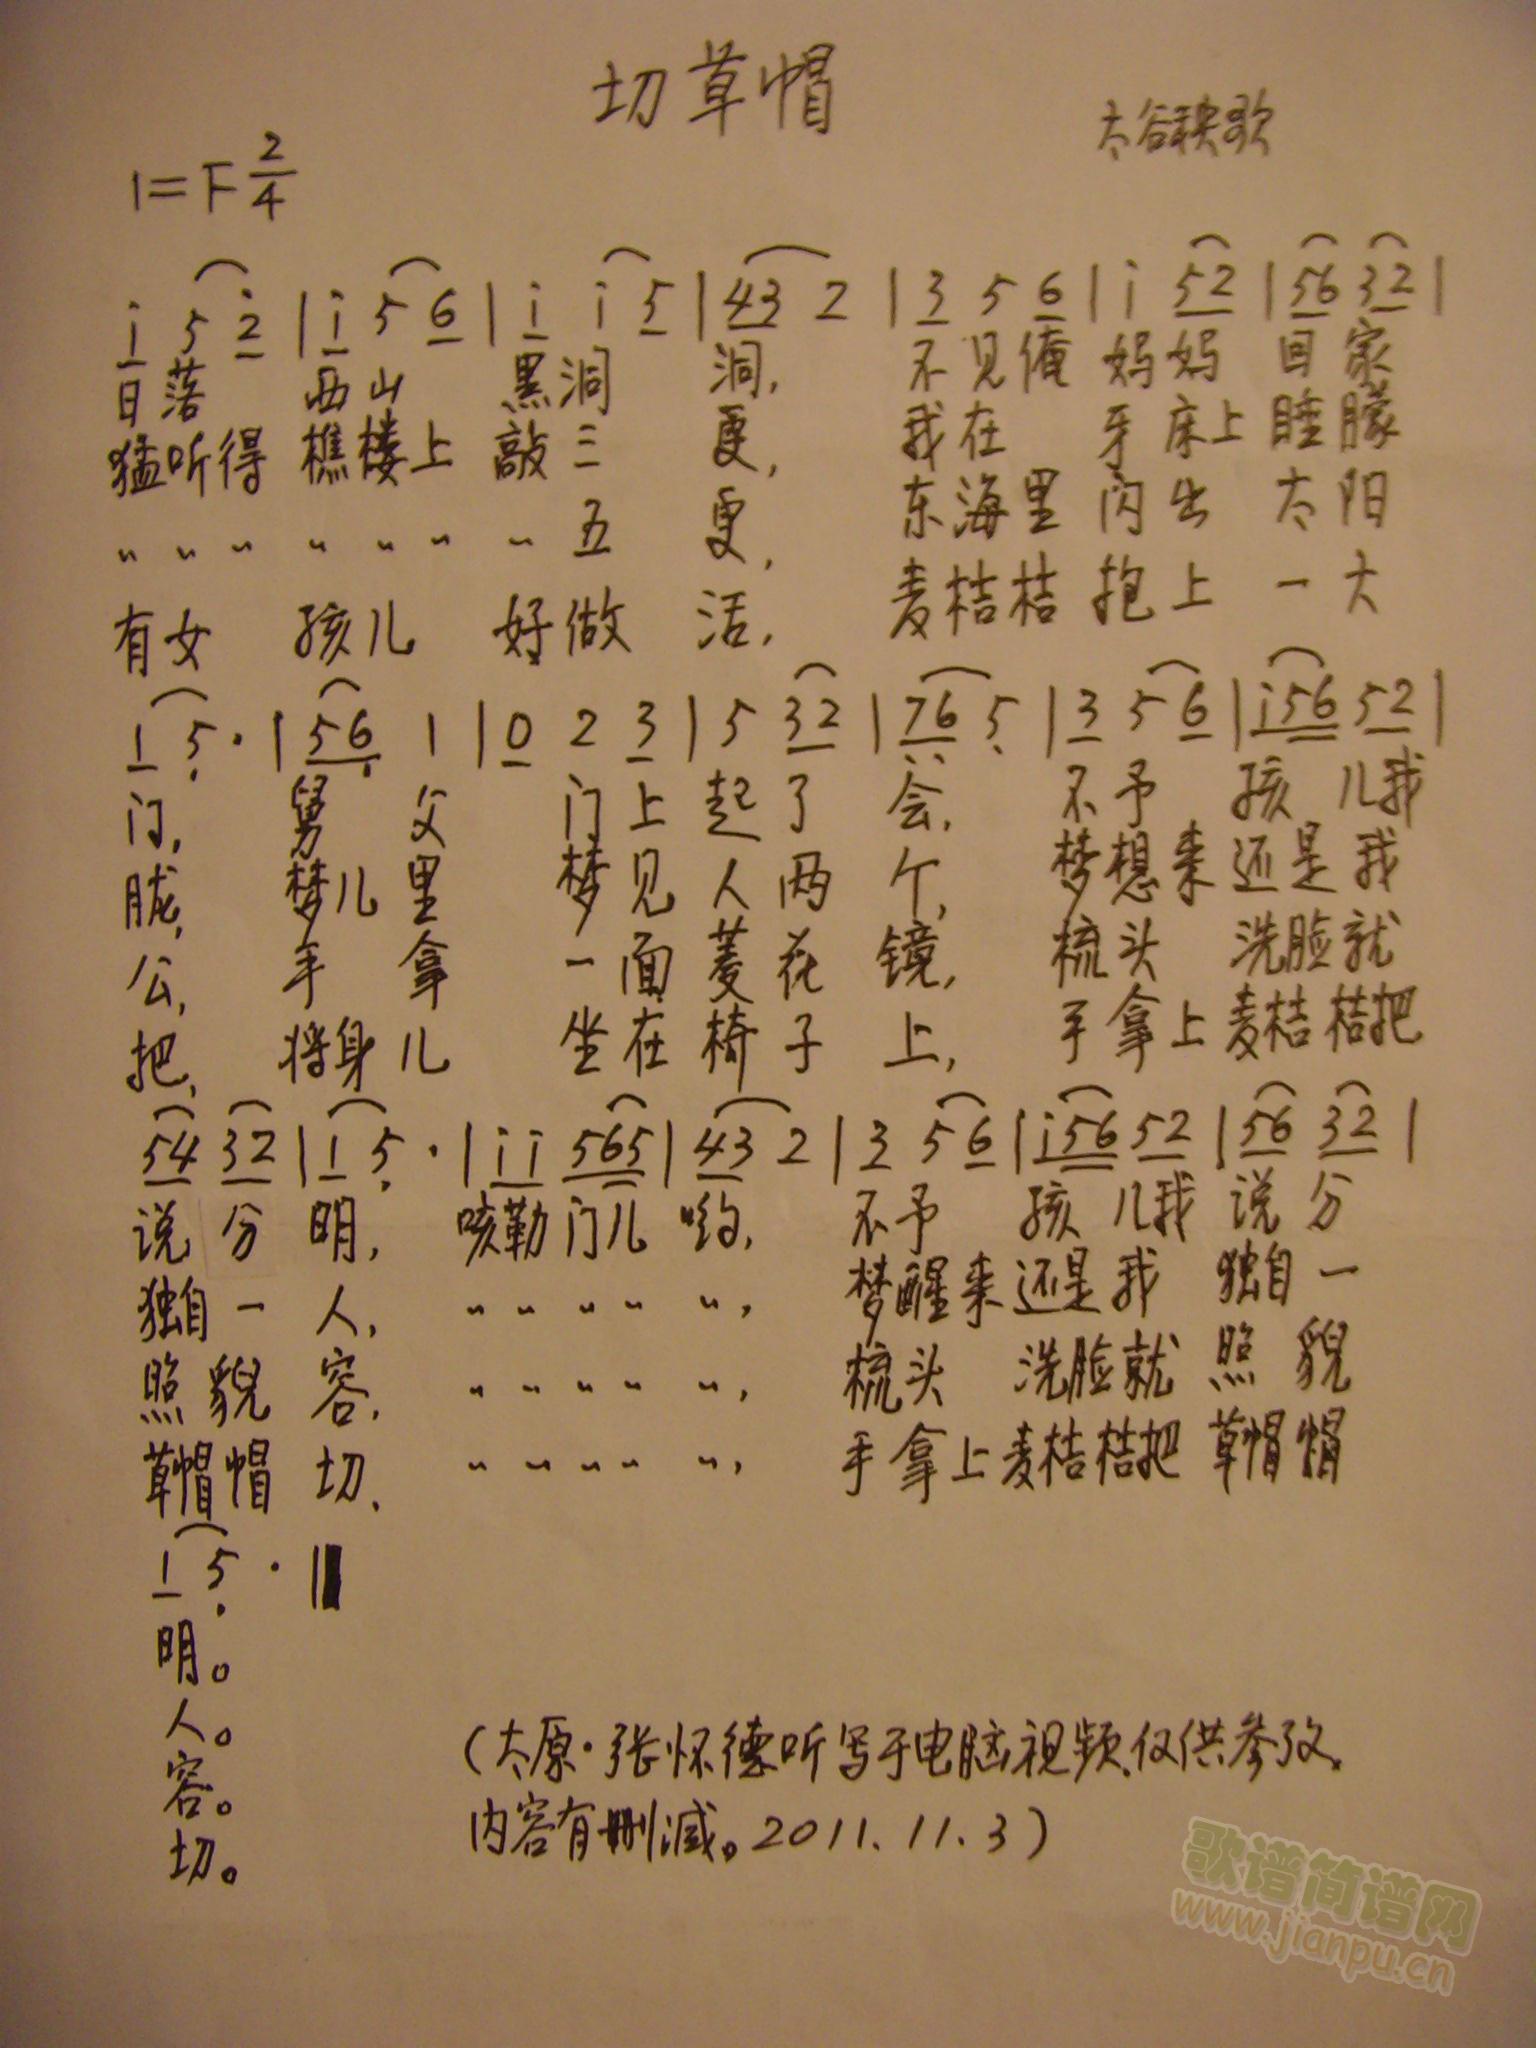 切草帽
太谷秧歌
1=F 2/4
i 5 2 | i 5 6 | i i 5 | 43 2 | 3 5 6 | i 52 | 56 32 |
日落 西山 黑洞 洞, 不见俺 妈妈 回家
猛听得 樵楼上 敲三 更, 我在 牙床上 睡朦
〃 〃 〃 〃 〃 〃 〃 五 更, 东海里 闪出 太阳
有女 孩儿 好做 活, 麦桔桔 抱上 一大
1 5· | 56 1 | 0 2 3 | 5 32 | 76 5 | 3 5 6 | i56 52 |
门, 舅 父 门上 起了 会, 不予 孩 儿我
胧, 梦儿 里 梦见 人两 个, 梦想来 还是我
公, 手 拿 一面 菱花 镜, 梳头 洗脸就
把, 将身儿 坐在 椅子 上, 手拿上 麦桔桔把
54 32 | 1 5· | ii 565 | 43 2 | 3 5 6 | i56 52 | 56 32 |
说 分 明, 咳勒门儿 哟, 不予 孩 儿我 说 分
独自一 人, 〃 〃 〃 〃 〃, 梦醒来 还是我 独自一
照 貌 容, 〃 〃 〃 〃 〃, 梳头 洗脸就 照 貌
草帽帽 切, 〃 〃 〃 〃 〃, 手拿上 麦桔桔把 草帽帽
1 5· ‖
明。
人。
容。
切。
(太原·张怀德听写于电脑视频,仅供参考,
内容有删减。2011.11.3)
歌谱简谱网
www.jianpu.cn